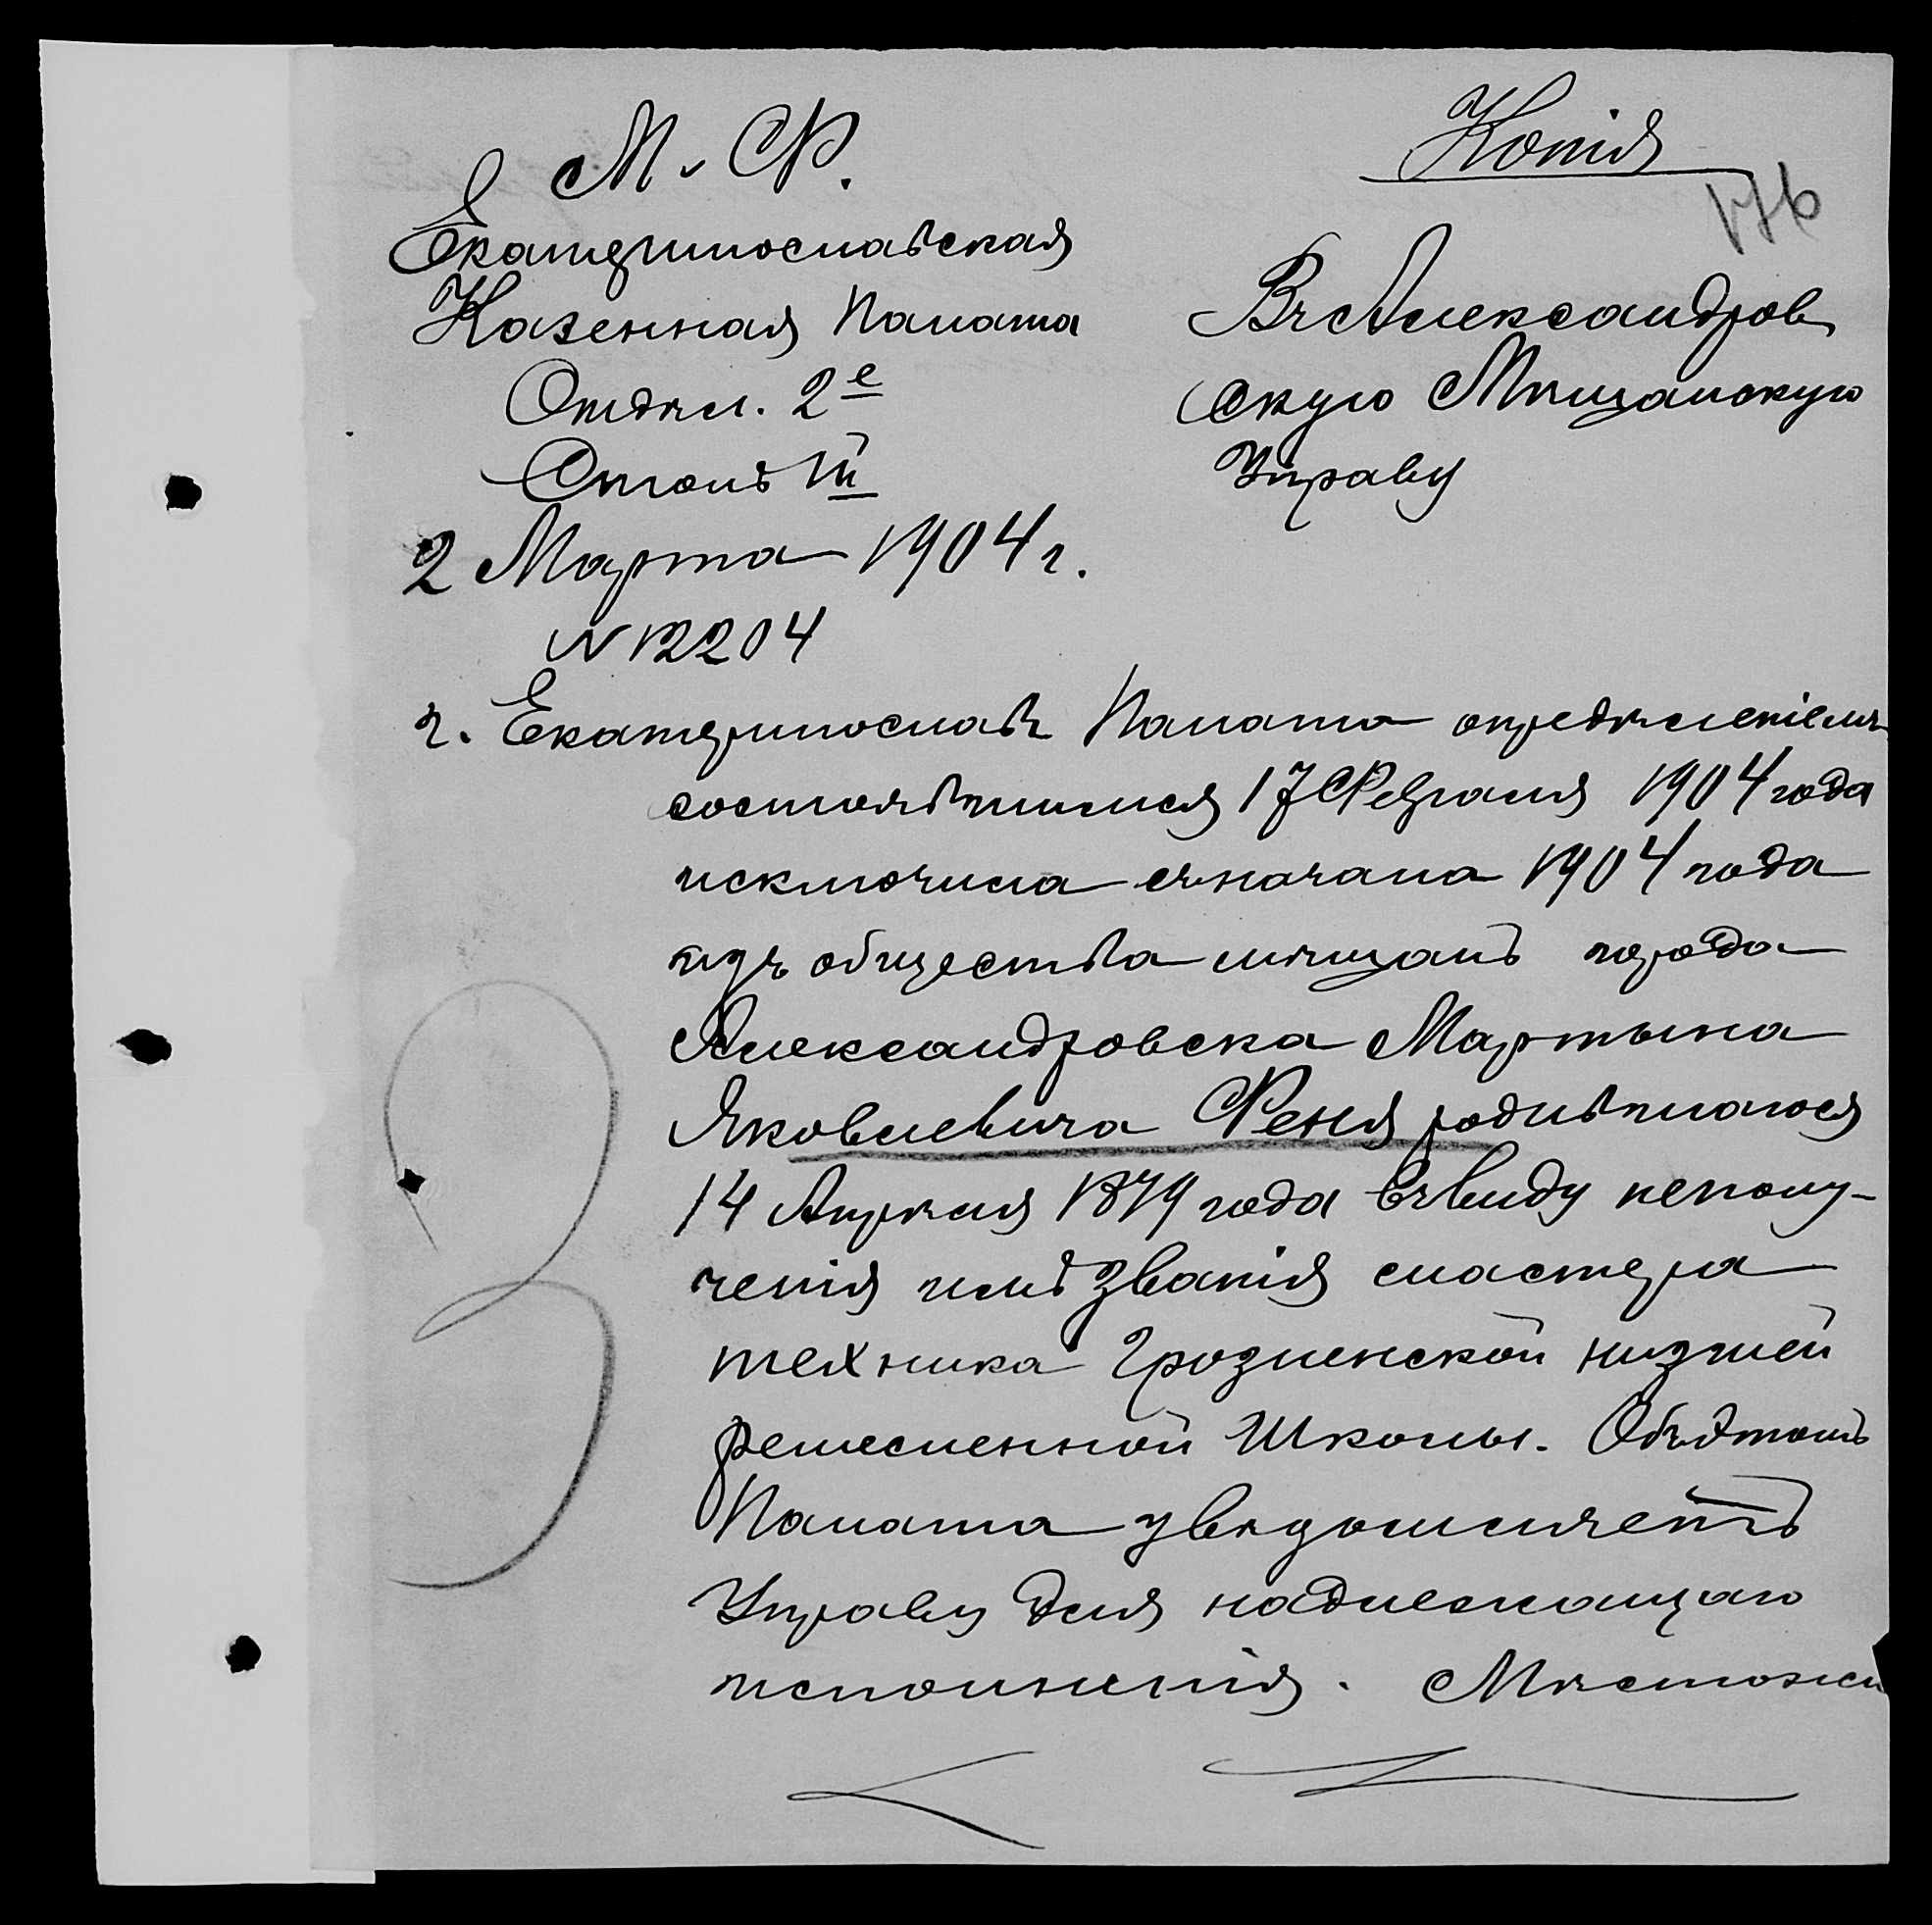 М. Ф.
Копія
176
Екатеринославская
Казенная Палата
Отдѣл. 2е
Столъ III
2 Марта 1904 г.
N 12204
Въ Александров
скую Мѣщанскую
Управу
г. Екатеринославъ Палата опредѣленіемъ
состоявшимся 17 Февраля 1904 года
исключила съ начала 1904 года
изъ общества мѣщанъ города
Александровска Мартына
Яковлевича Феня родившагося
14 Апрѣля 1879 года въ виду неполу-
ченія имъ званія мастера
техника Грозненской низшей
ремесленной Школы. Объ этомъ
Палата увѣдомляетъ
Управу для надлежащаго
исполненія.